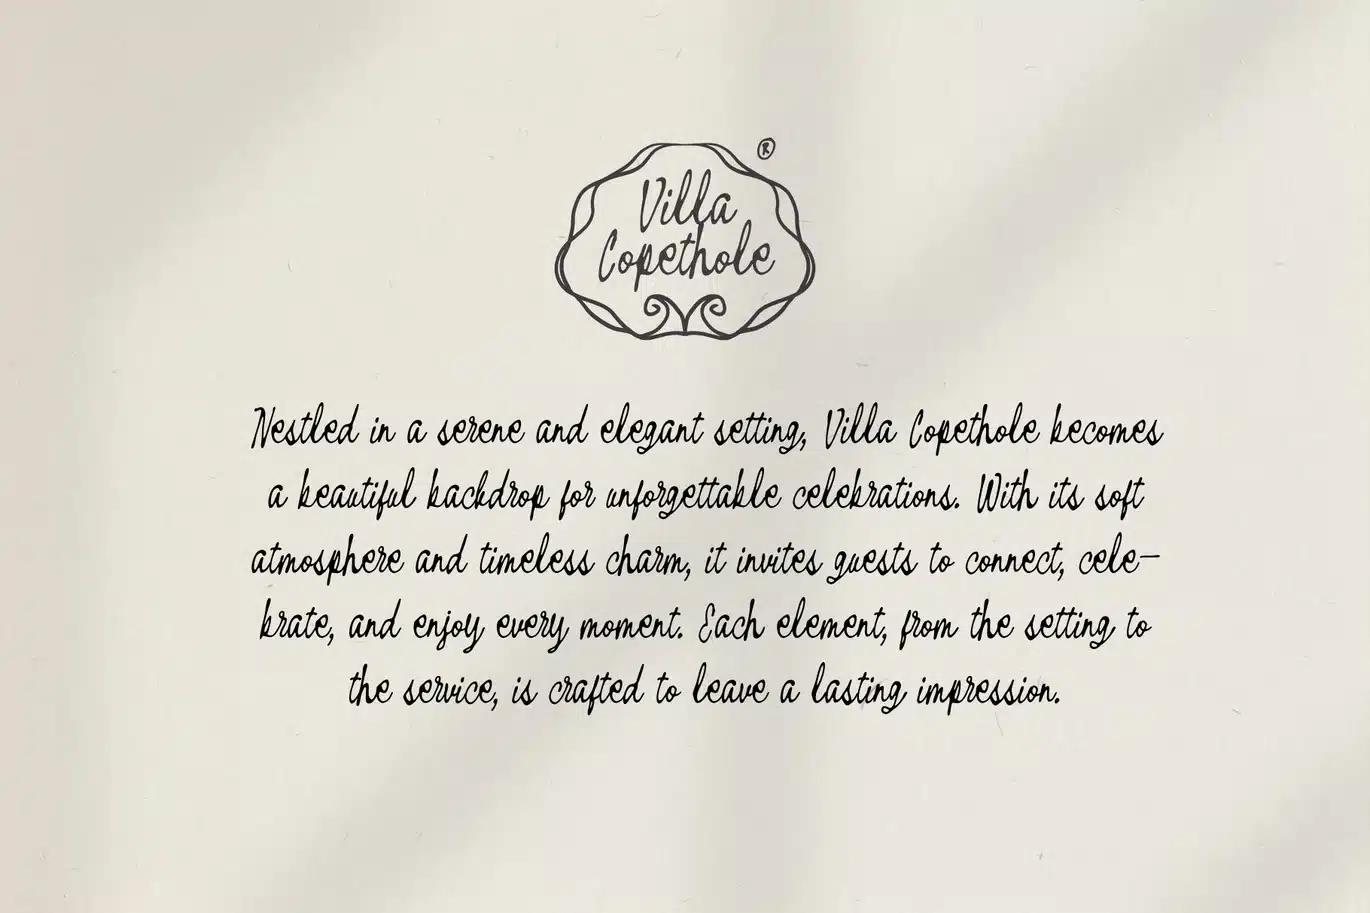 ®
Villa
Copethole
Nestled in a serene and elegant setting, Villa Copethole becomes
a beautiful backdrop for unforgettable celebrations. With its soft
atmosphere and timeless charm, it invites guests to connect, cele-
brate, and enjoy every moment. Each element, from the setting to
the service, is crafted to leave a lasting impression.